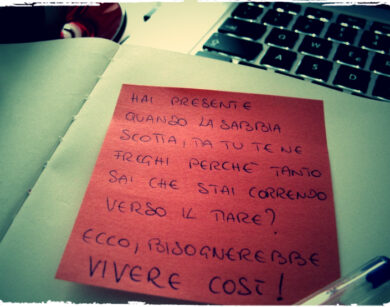 HAI PRESENTE
QUANDO LA SABBIA
SCOTTA, MA TU TE NE
FREGHI PERCHÉ TANTO
SAI CHE STAI CORRENDO
VERSO IL MARE?
ECCO, BISOGNEREBBE
VIVERE COSÌ!